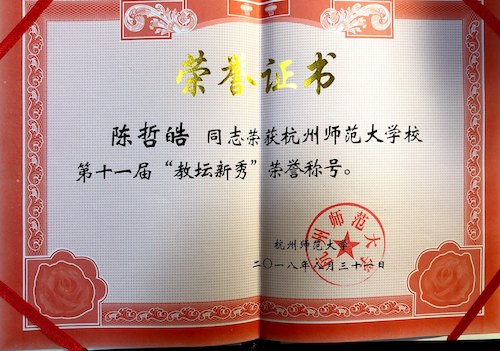 荣誉证书
陈哲皓 同志荣获杭州师范大学校
第十一届“教坛新秀”荣誉称号。
杭州师范大学
二〇一八年八月三十一日
杭州师范大学